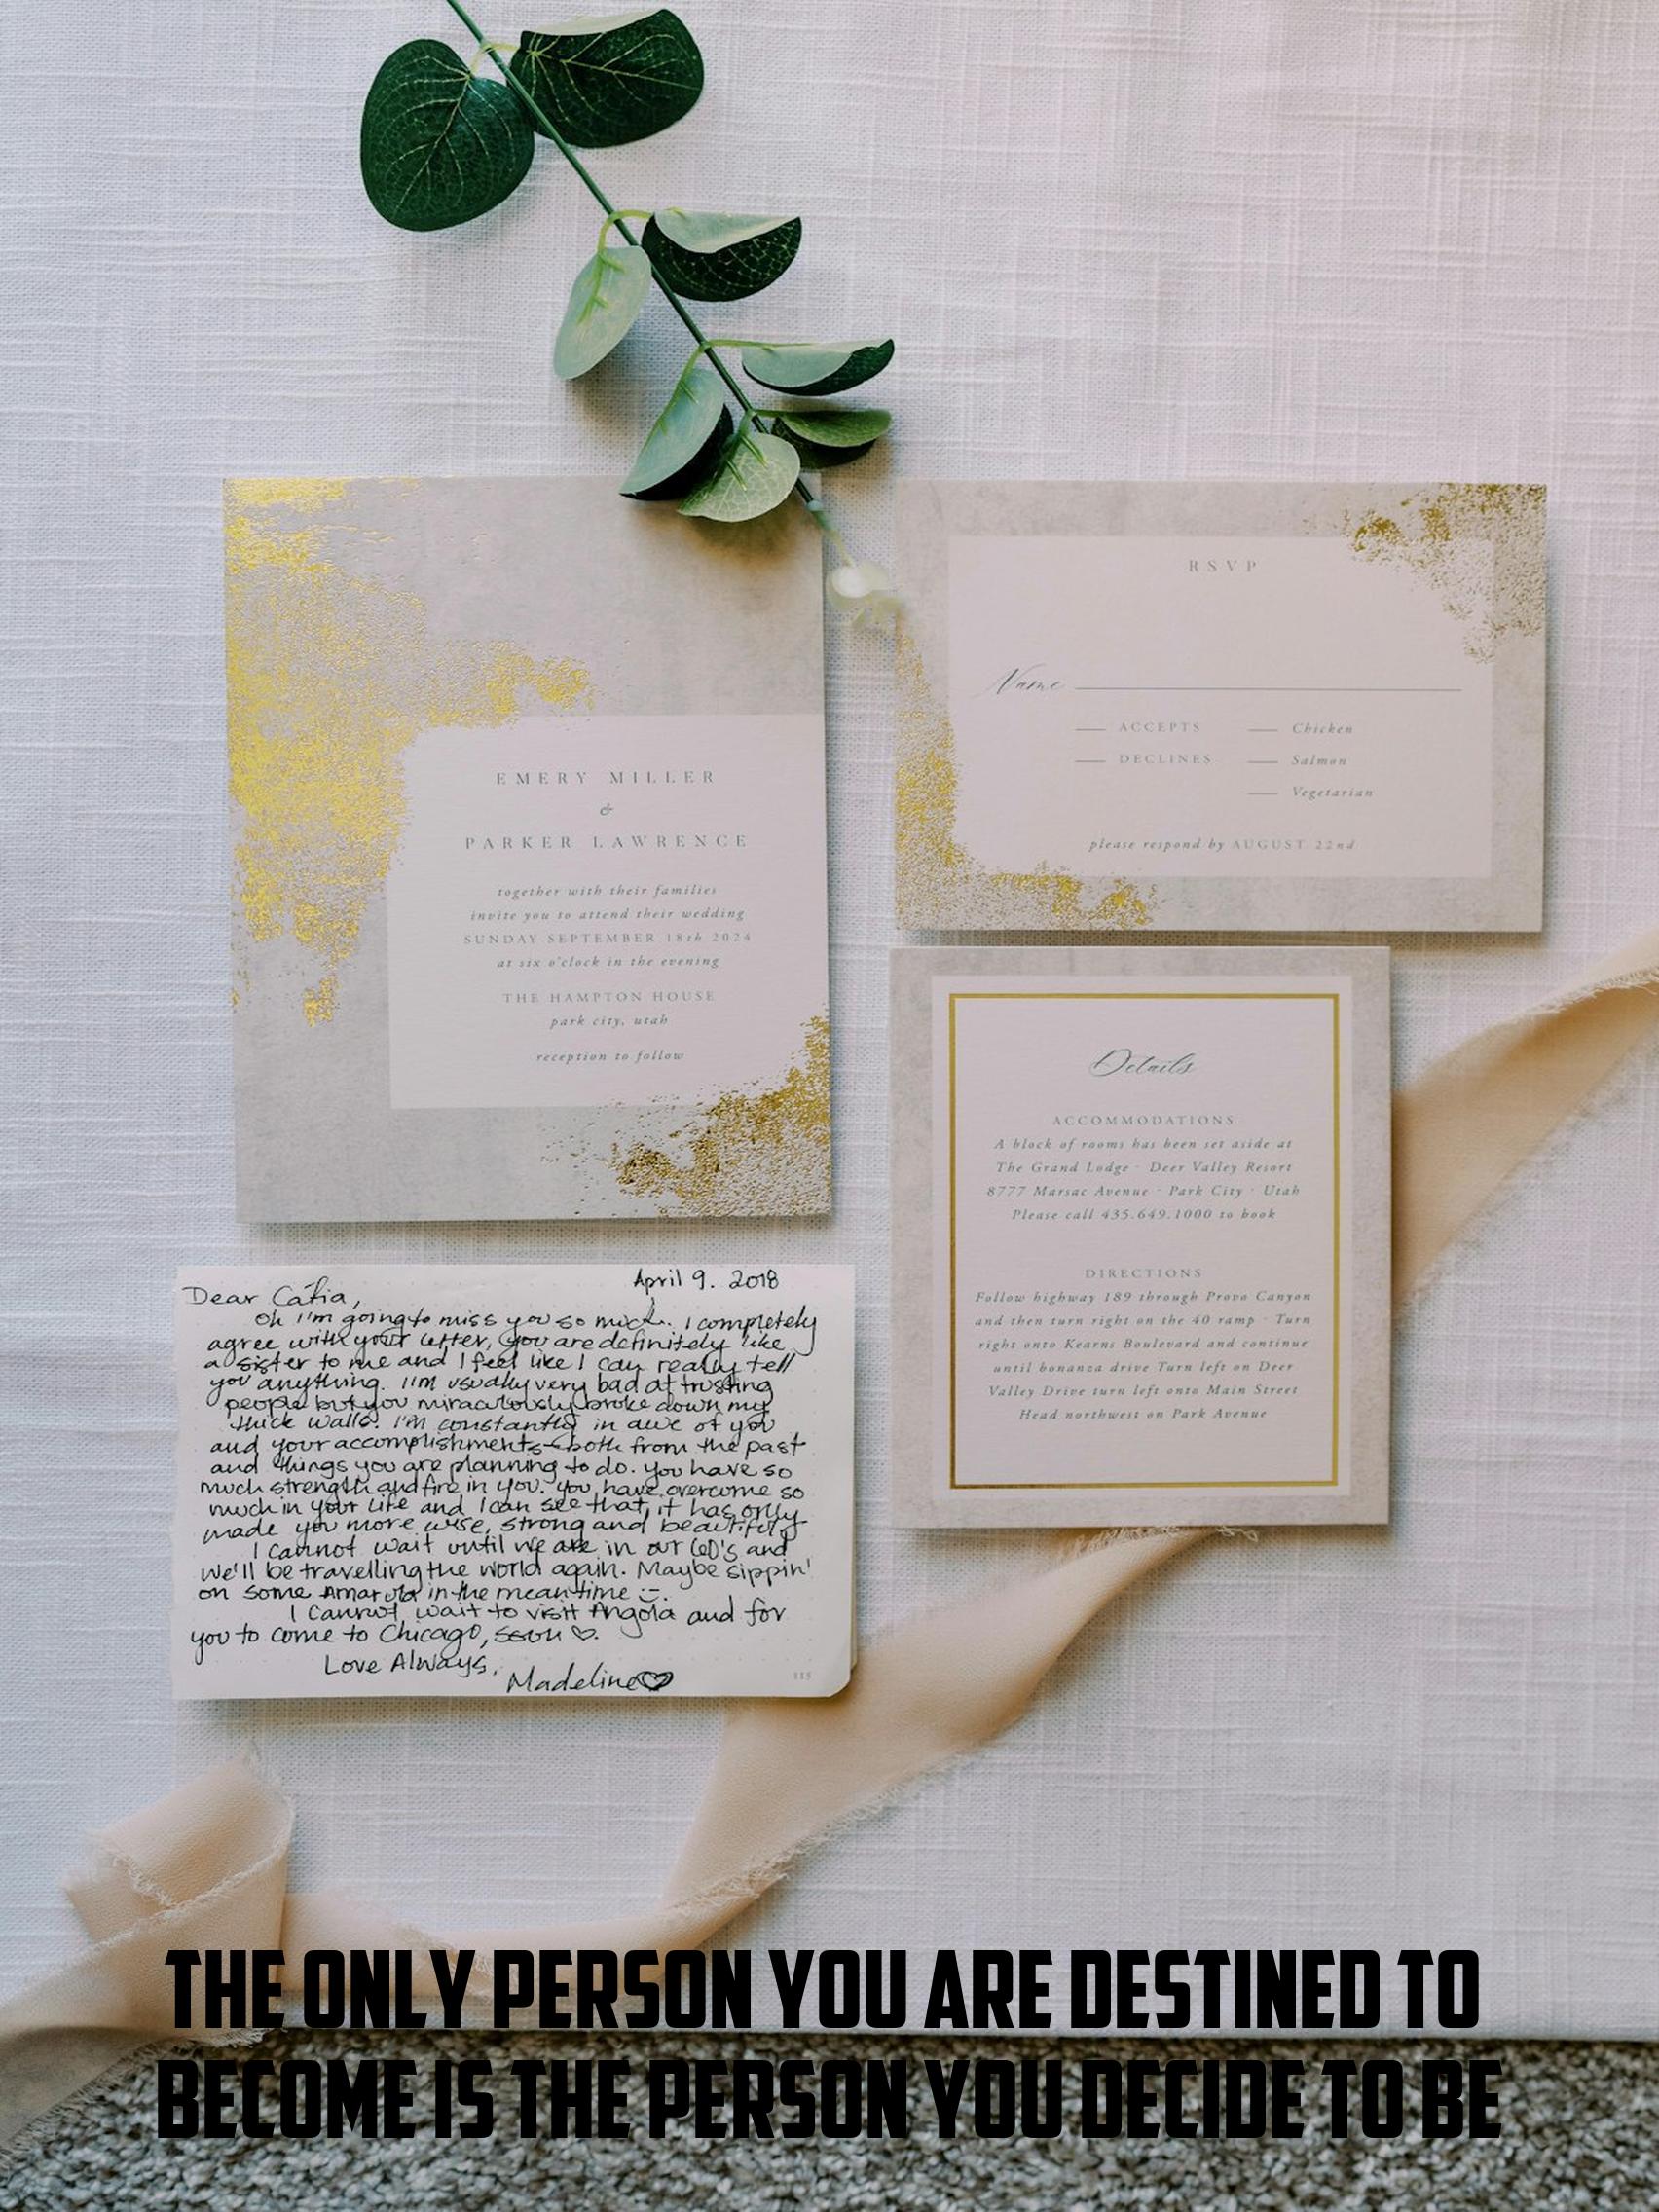 EMERY MILLER
&
PARKER LAWRENCE
together with their families
invite you to attend their wedding
SUNDAY SEPTEMBER 18th 2024
at six o'clock in the evening
THE HAMPTON HOUSE
park city, utah
reception to follow
RSVP
Name
ACCEPTS Chicken
DECLINES Salmon
Vegetarian
please respond by AUGUST 22nd
Details
ACCOMMODATIONS
A block of rooms has been set aside at
The Grand Lodge · Deer Valley Resort
8777 Marsac Avenue · Park City · Utah
Please call 435.649.1000 to book
DIRECTIONS
Follow highway 189 through Provo Canyon
and then turn right on the 40 ramp · Turn
right onto Kearns Boulevard and continue
until bonanza drive Turn left on Deer
Valley Drive turn left onto Main Street
Head northwest on Park Avenue
April 9. 2018
Dear Catia,
Oh I'm going to miss you so much. I completely
agree with your letter, you are definitely like
a sister to me and I feel like I can really tell
you anything. I'm usually very bad at trusting
people but you miraculously broke down my
thick walls. I'm constantly in awe of you
and your accomplishments - both from the past
and things you are planning to do. You have so
much strength and fire in you. You have overcome so
much in your life and I can see that it has only
made you more wise, strong and beautiful.
I cannot wait until we are in our 60's and
we'll be travelling the world again. Maybe sippin'
on some Amarula in the meantime :).
I cannot wait to visit Angola and for
you to come to Chicago, soon ♡.
Love Always,
Madeline♡
115
THE ONLY PERSON YOU ARE DESTINED TO
BECOME IS THE PERSON YOU DECIDE TO BE